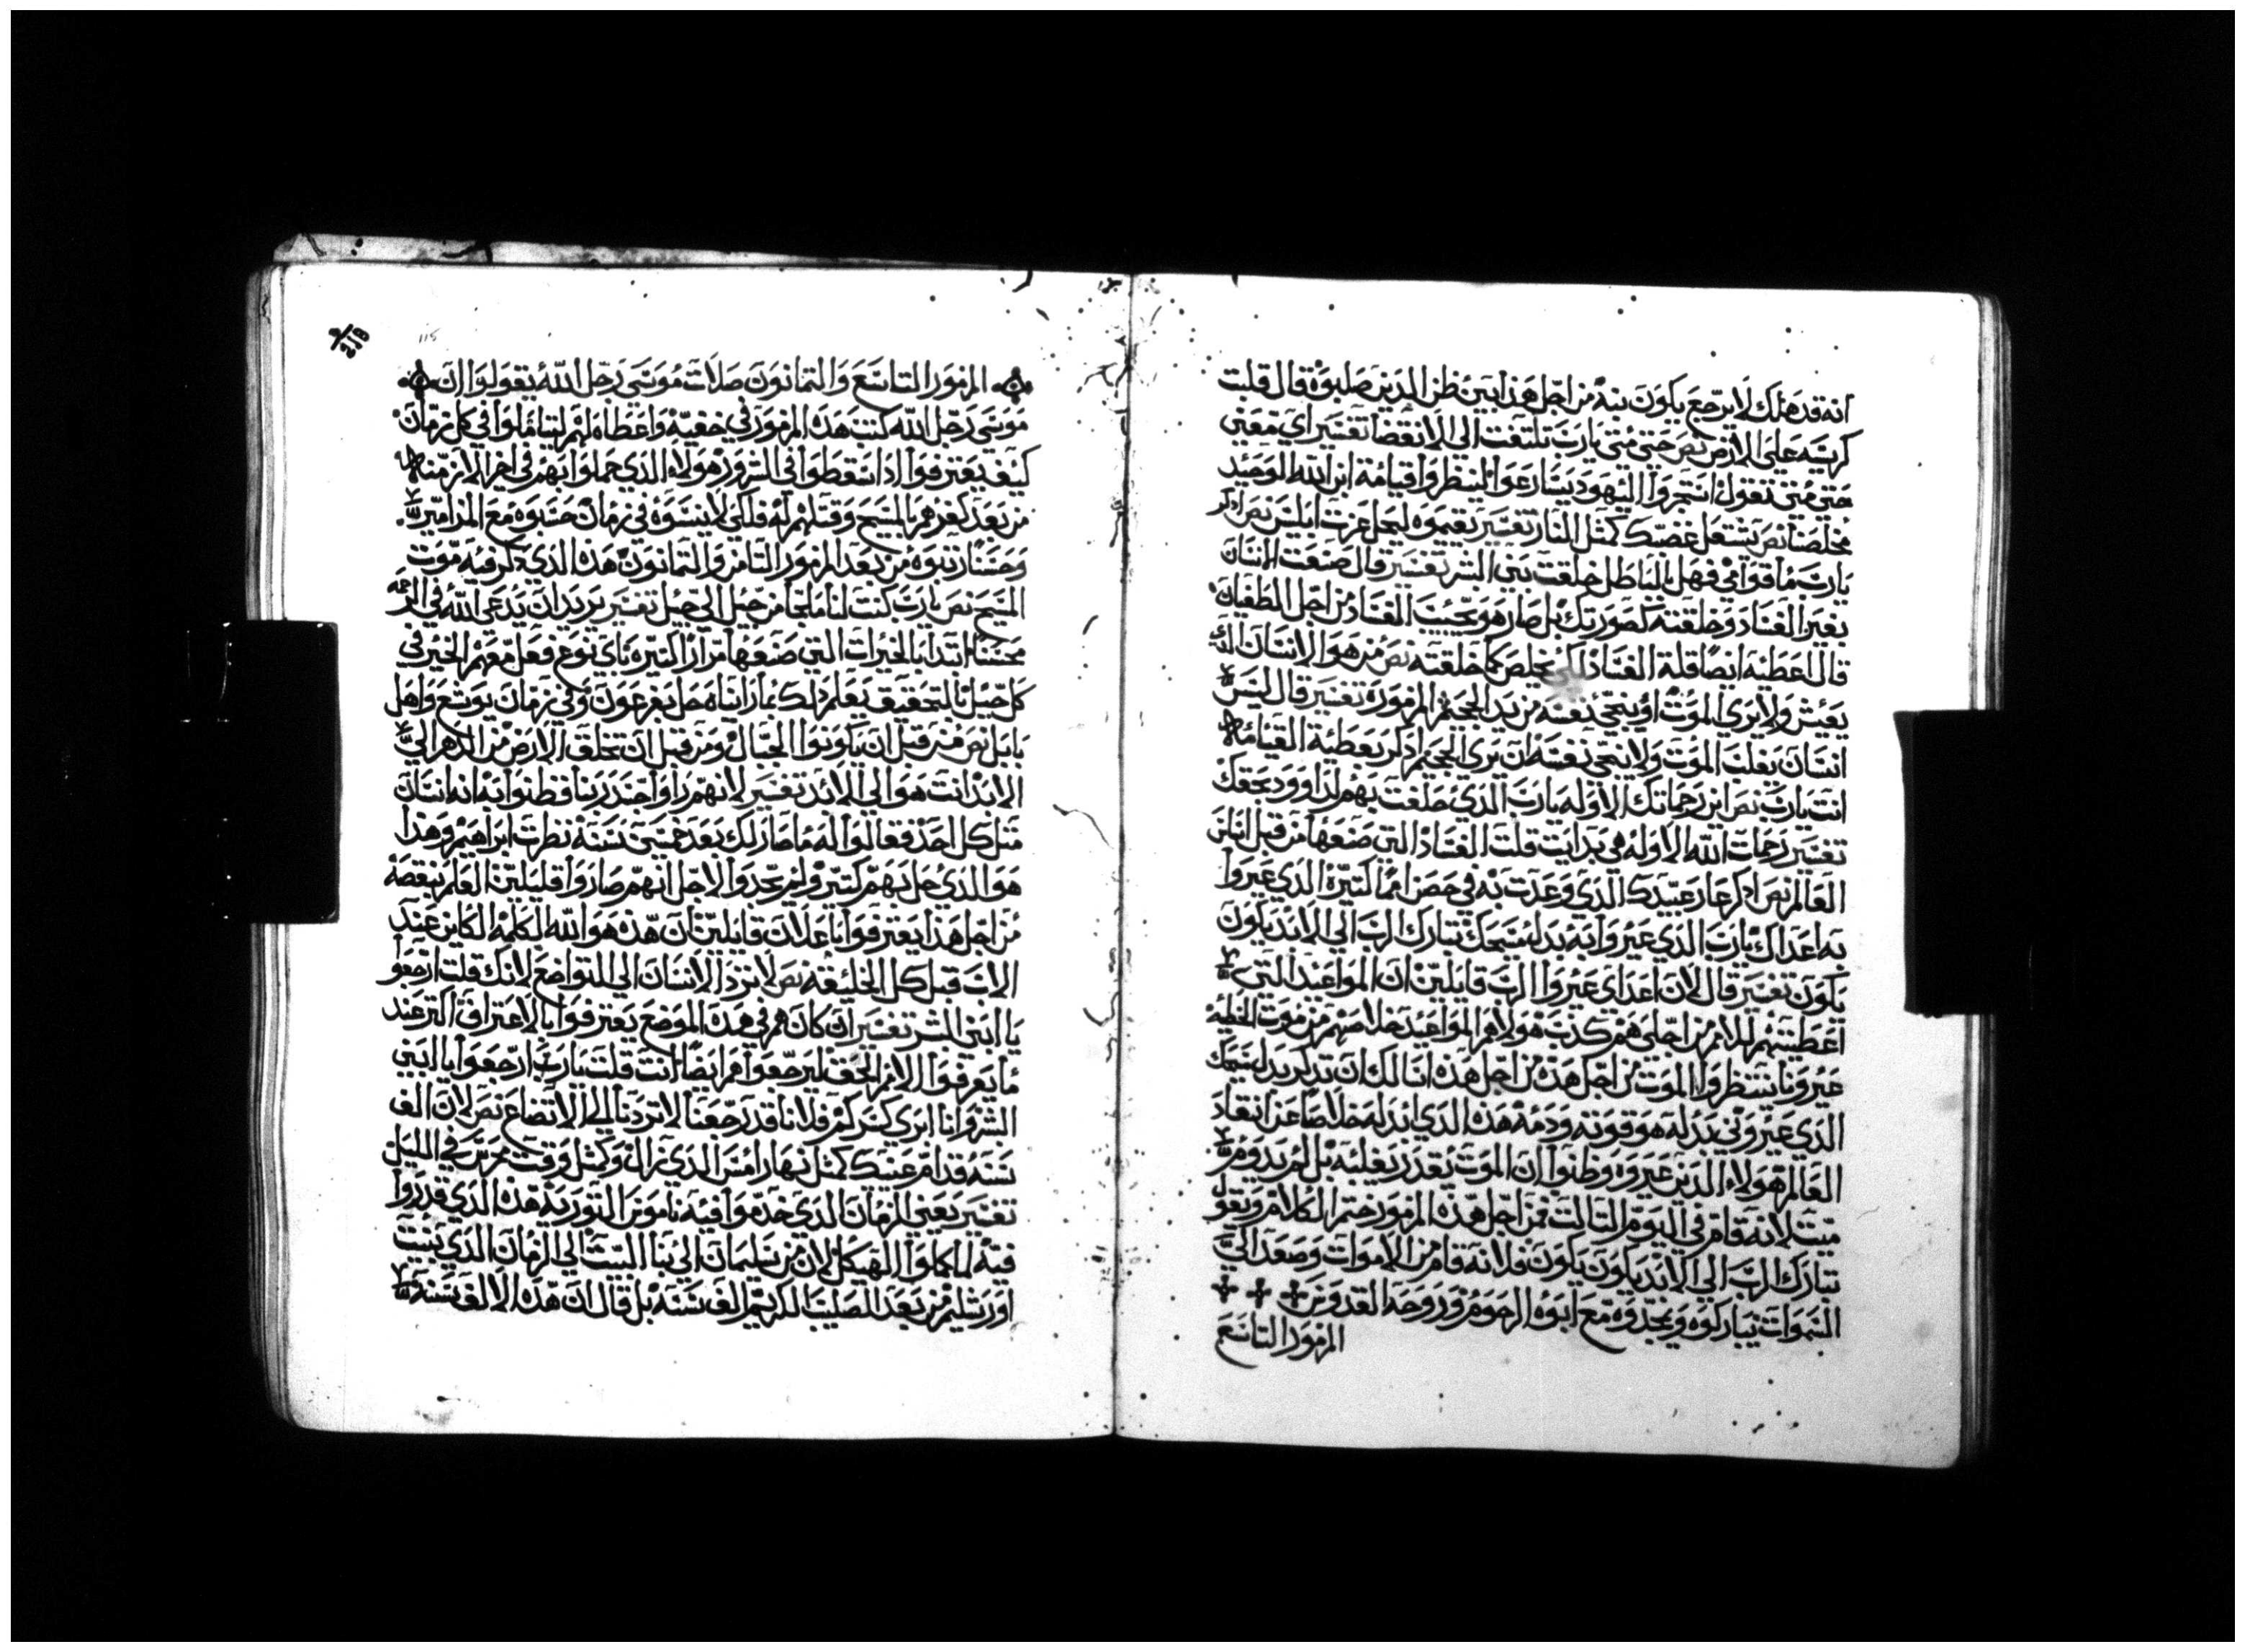 انه قد هلك لا يرجع يكون بيده من اجل هذا يبين ظن الدين صلبوه قال قلت
كرسيه على الارض نص حتى متى يارب تلتفت الي الانقضا تفسير اي معني
حتي متي تقول انتجروا اليهود يسارعوا لينظروا قيامة ابن الله الوحيد
مخلصنا نص يشتعل غضبك كمثل النار تفسير تقيموه ليحل عزت ابليس نص ادكر
يارب ما قوامي فهل بالباطل خلقت بني البشر تفسير قال صنعت الانسان
بغير الفساد وخلقته كصورتك بل صار هو تحت الفساد من اجل الطغيان
قال اعطيه ايضا قلة الفساد لكي يخلص كما خلقته نص من هو الانسان الذي
يعيش ولا يري الموت او ينجي نفسه من يد الجحيم المزمورة تفسير قال ليس
انسان يغلب الموت ولا ينجي نفسه ان يري الجحيم اد لم يعطيه القيامة
انت يارب نص اين رحماتك الاوله يارب الدي حلفت بهم لداوود بحقك
تفسير رحمات الله الاوله هي بدايت قلت الفساد التي صنعها من قبل اساس
العالم نص ادكر عار عبيدك الدي وعدت به في حضن امما كتيرة الدي عيروا
به اعداك يارب الدي عيروا به بدل مسيحك تبارك الرب الي الابد يكون
يكون تفسير قال لان اعداي عيروا الرب قايلين ان المواعيد التي
اعطيتهم للامم من اجلي هم كدب هولاهم المواعيد خلاصهم من موت الخطيه
عيرونا ينتظروا الموت من اجل هده من اجل هده اسالك ان تدكر بدل مسيحك
الدي عيروني بدله هو قوته ودمه هدا الدي ابدله خلاصا عن انقاد
العالم هولاء الدين عيروه وظنوا ان الموت يقدر يغلبه بل لم يدوم
ميت لانه قام في اليوم التالت فمن اجل هده المزمور ختم الكلام وتقول
تبارك الرب الي الابد يكون يكون فلانه قام من الاموات وصعد الي
السموات نباركوه ونمجدوه مع ابوه الرحوم وروحه القدوس
المزمور التاسع
المزمور التاسع والتمانون صلات موسى رجل الله يقولوا ان
موسى رجل الله كتب هده المزمور في خفيه واعطاه لهم ليتاملوا في كل زمان
كيف يعترفوا ادا سقطوا في الشرور هولاء الدي حملوا بهم في اخر الازمنه
من بعد كفرهم بالمسيح وقتلهم له فلكي لا ينسوه في زمان حسبوه مع المزامير
وحسنا رتبوه من بعد المزمور التامن والتمانون هده الدي دكر فيه موت
المسيح نص يارب كنت لنا ملجا من جيل الي جيل تفسير يريد ان يدعي الله في الرحمه
محسنا ابتدا بالخيرات التي صنعها مرارا كتيره باي نوع فعل معهم الخير في
كل جيل بالتحقيق يعلم دلك بما راياه حل بفرعون وفي زمان يوشع واهل
بابل نص من قبل ان يكونوا الجبال ومن قبل ان تخلق الارض من الدهر الي
الابد انت هو الي الابد تفسير لانهم راوا جسد ربنا فظنوا به انه انسان
متل كل احد فقالوا له ما صار لك بعد خمسين سنة نظرت ابراهيم وهدا
هو الدي حل بهم كتير ولم يجدوا لاجل انهم صاروا قليلين العلم ببغضه
من اجل هدا يعترفوا باعلان قايلين ان هده هو الله الكلمة الكاين عند
الاب قبل كل الخليقه نص لا ترد الانسان الي التواضع لانك قلت ارجعوا
يا ابني البشر تفسير ان كان هم في هده الموضع يعترفوا بالاعتراف اكتر عند
ما يعرفوا الامر الحق ليرجعوا هم ايضا انت قلت يارب ارجعوا يا ابني
البشر وانا ابري كسركم فلاننا قد رجعنا لا تردنا الي الاتضاع نص لان الف
سنه قدام عينيك كمتل نهار امس الدي زال وكمتل وقت محرس في الليل
تفسير يعني الزمان الدي خدموا فيه ناموس التوريه هده الدي قدروا
فيه لما كملوا الهيكل لان من سليمان الي بنا البيت الي الزمان الدي بنيت
اورشليم من بعد الصليب الكريم الف سنه بل قال ان هده الالف سنه